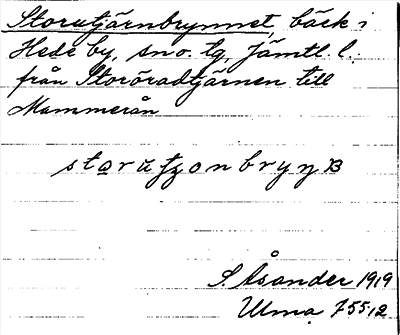 Storutjärnbrynnet, bäck i
Hede by, sno. tg, Jämtl. l.
från Storöradtjärnen till
Mammerån
storutzonbryn
S. Åsander 1919
Ulma 755:12